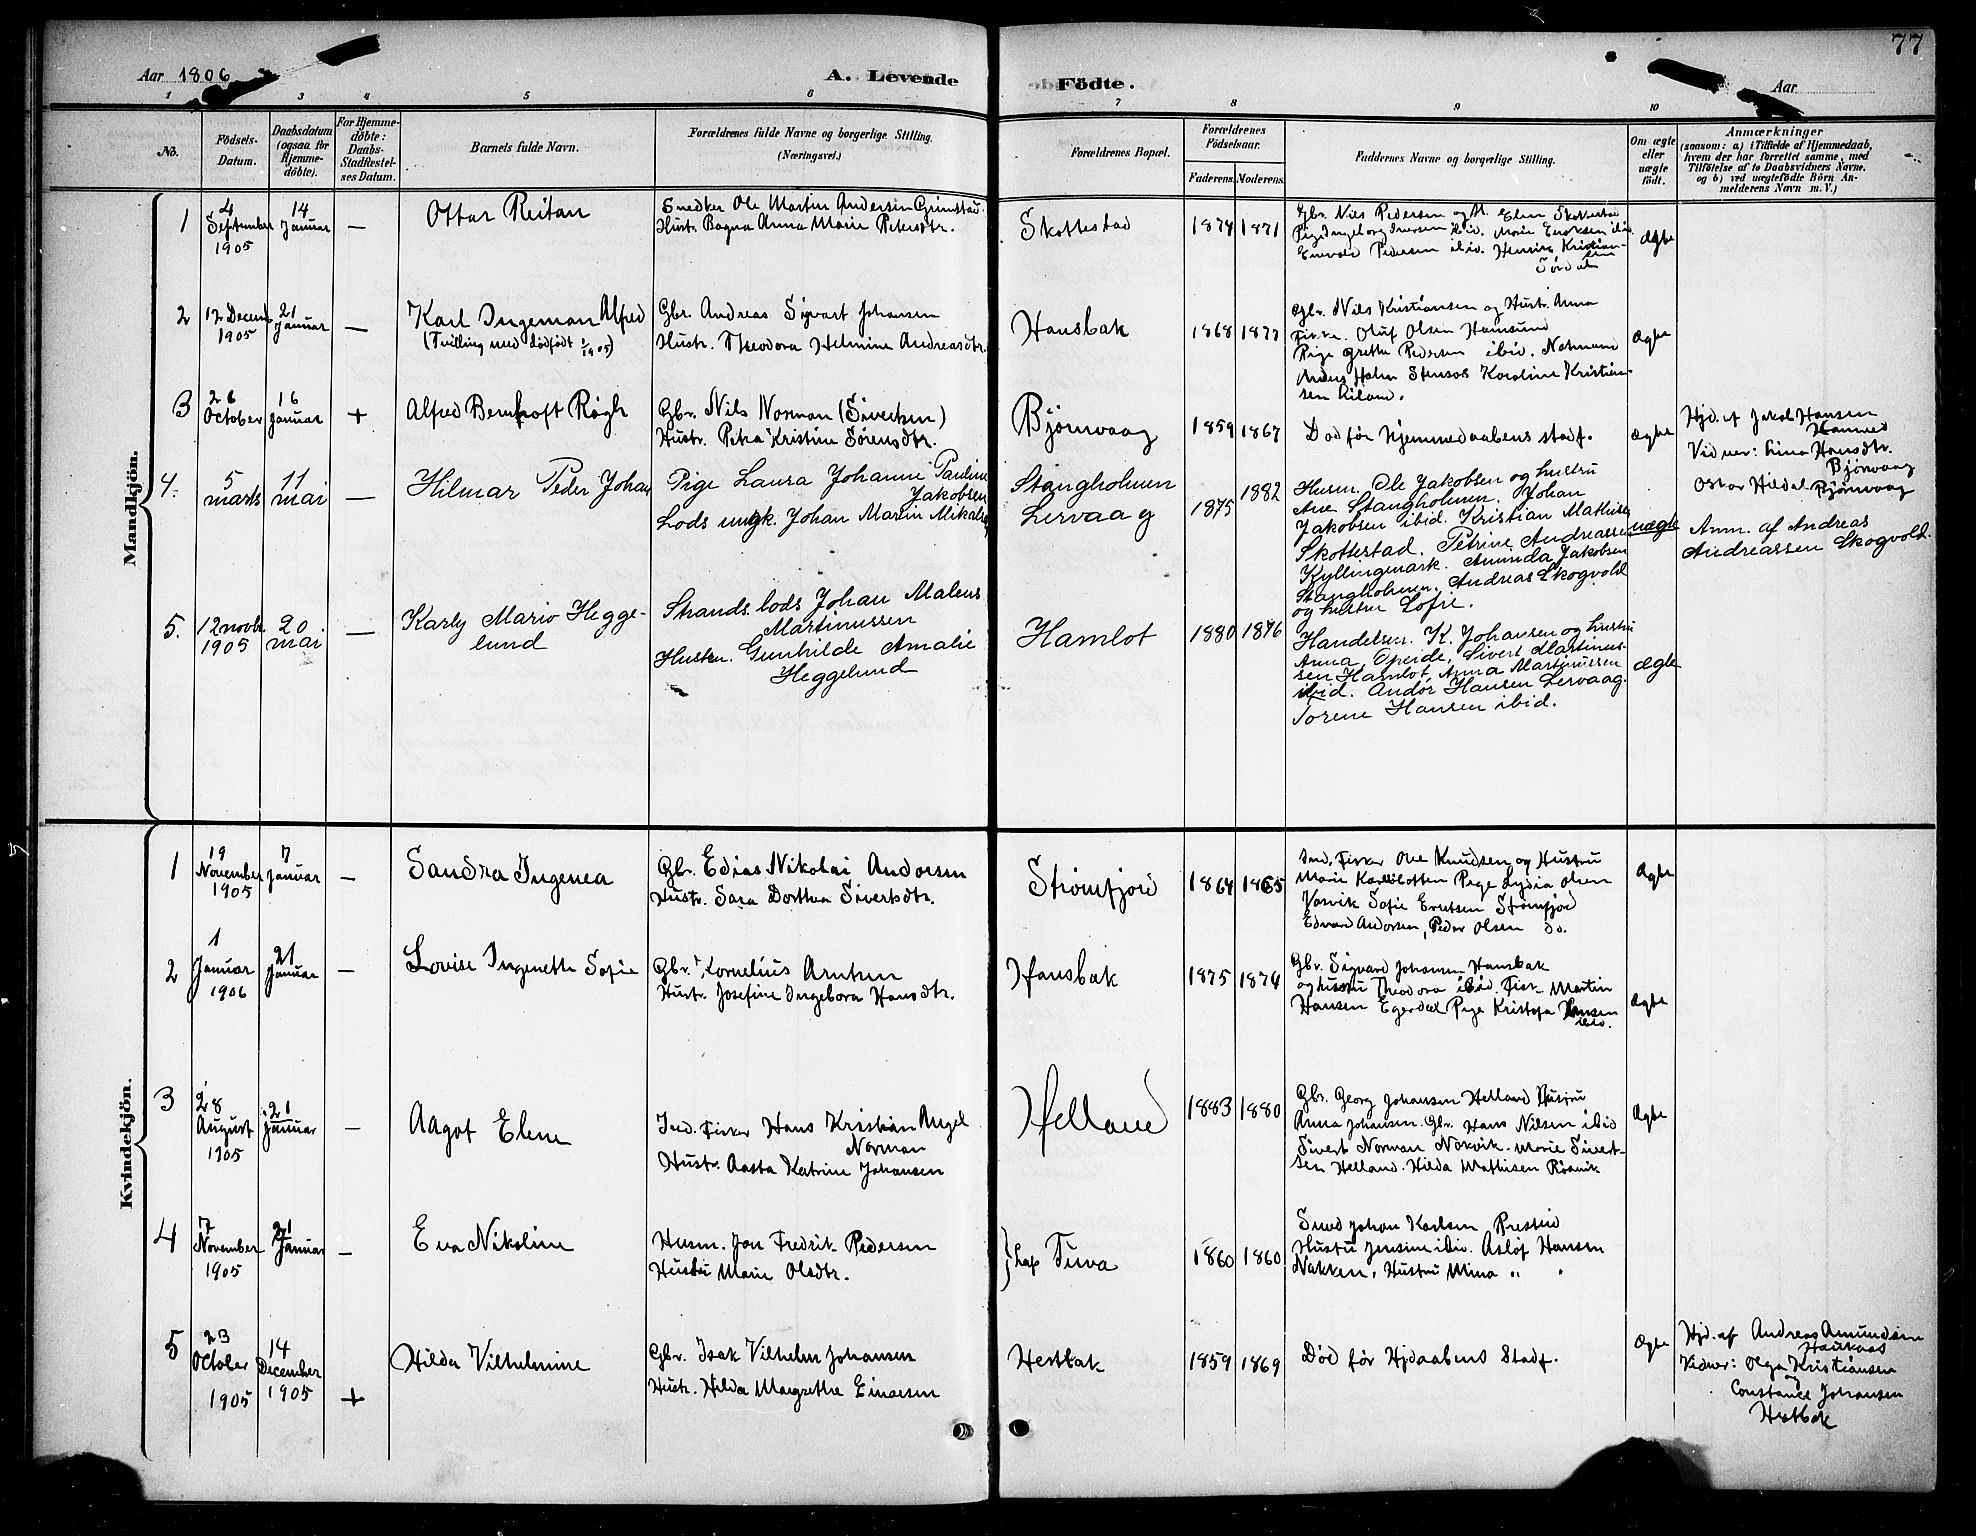 77
Aar 1806
A. Levende
Födte.
Aar
1 3 4 5 6 7 8 9 10
No.
Födsels-
Datum.
Daabsdatum
(ogsaa for
Hjemme-
döbte).
For Hjemme-
döbte:
Daabs-
Stadfestel-
ses Datum.
Barnets fulde Navn.
Forældrenes fulde Navne og borgerlige Stilling.
(Næringsvei.)
Forældrenes Bopæl.
Forældrenes
Födselsaar.
Faderens. Moderens.
Faddernes Navne og borgerlige Stilling.
Om ægte
eller
uægte
født.
Anmærkninger
(saasom: a) i Tilfælde af Hjemmedaab,
hvem der har forrettet samme, med
Tilföielse af to Daabsvidners Navne.
og b) ved uægtefödte Börn An-
melderens Navn m. V.)
Mandkjön.
1
4
September
1905
14
Januar
—
Ottar Reitan
Snedker Ole Martin Andersen Grimstad.
Hustr. Ragna Anna Marie Petersdtr.
Skottestad
1874 1871
Gbr. Nils Pedersen og H. Elen Skottestad
Pige Ingeborg Iversen ibid. Marie Eriksen ibid.
Edvald Pedersen ibid. Henrik Kristian-
sen
ægte
2
12 Decemb
1905
21
Januar
—
Karl Ingeman Alfred
(Tvilling med dödfödt 1/1905)
Gbr. Andreas Sigvart Johansen
Hustr. Theodora Helmine Andreasdtr.
Hansbak
1868 1877
Gbr. Nils Kristiansen og Hustr. Anna
Fisker. Oluf Olsen Hamsund
Pige Grethe Pedersen ibid.
Karoline Kristian-
sen
ægte
3
26
October
16
Januar
+
Alfred Bernhoft Rögh
Gbr. Nils Norman (Sivertsen)
Hustr. Petra Kristine Sörensdtr.
Björnvaag
1859 1867
Död för Hjemmedaabens stadf.
ægte
Hjd. af Jakob Hansen
Hamred
Vidner: Lina Hansdtr.
Björnvaag
Oskar Hildal Björnvaag
4.
5
marts
11
mai
—
Hilmar Peder Johan
Pige Laura Johanne Pauline
Jakobsen
Lods ungk. Johan Martin Mikals
Stangholmen
Lervaag
1875
1882
Husm. Ole Jakobsen og hustru
Ane Stangholmen. Johan
Jakobsen ibid. Kristian Mathisen
Skottestad. Petrine Andreassen
Kyllingmark. Aminda Jakobsen
Stangholmen. Andreas Skogvold
og hustru Lofie.
uægte
Anm. af Andreas
Andreassen Skogvold.
5.
12 novb.
1905
20
mai
—
Karly Mario Hegge-
lund
Strands. lods Johan Maleus
Martinussen
Hustru. Gunhilde Amalie
Heggelund
Hamlot
1880 1876
Handelsm. K. Johansen og hustru
Anna, Opeide, Sivert Martinus-
sen Hamlot, Anna Martinussen
ibid. Andor Hansen Lervaag.
Torene Hansen ibid.
ægte
Kvindekjön.
1
19
November
1905
7
Januar
—
Sandra Ingenea
Gbr. Edias Nikolai Andorsen
Hustr. Sara Dorthea Sivertsdtr.
Strömfjord
1864 1865
Ind. Fisker Ole Knudsen og Hustru
Marie Pige Lydia Olsen
Vasvik Sofie Erntsen Strömfjord
Edvard Andorsen, Peder Olsen do.
ægte
2
1
Januar
1906
21
Januar
—
Lovise Ingenette Sofie
Gbr. Kornelius Arntsen
Hustr. Josefine Ingeborg Hansdtr.
Hansbak
1875 1874
Gbr. Sigvard Johansen Hansbak
og hustru Theodora ibid. Fisk. Martin
Hansen Egerdal Pige Kristofa Hansen
ibid.
ægte
3
28
August
1905
21
Januar
—
Aagot Elene
Ind. Fisker Hans Kristian Angel
Norman
Hustr. Aasta Katrine Johansen
Helland
1883 1880
Gbr. Georg Johansen Helland Hustru
Anna Johansen. Gbr. Hans Nilsen ibid
Sivert Norman Nokvik. Marie Sivert-
sen Helland. Hilda Mathisen Rösvik
ægte
4
7
November
1905
21
Januar
—
Eva Nikoline
Husm. Jon Fredrik Pedersen
Hustru Marie Olsdtr.
} Lap Tuva
1860 1860
Smed Johan Karlsen Presteid
Hustru Jensine ibid. Aslof Hansen
Nakken, Hustru Mina „ „
5
23
October
1905
14
December
1905
+
Hilda Vilhelmine
Gbr. Isak Vilhelm Johansen
Hustr. Hilda Margrethe Einarsen
Hestbak
1859 1869
Död för Hjdaabens Stadf.
ægte
Hjd. af Andreas Amundsen
Haukaas
Vidner: Olga Kristiansen
og
Constance Johansen
Hestbak